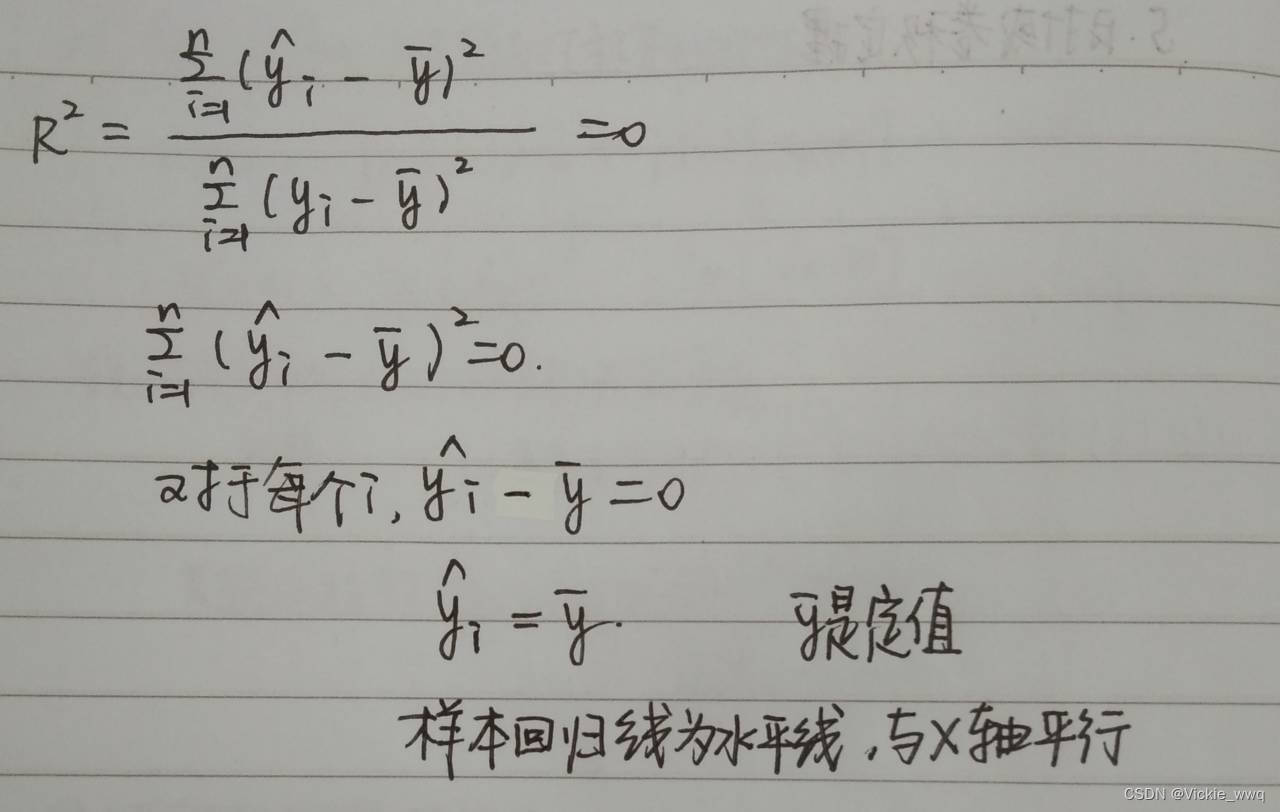 R² = \frac{\sum_{i=1}^{n}(\hat{y}_i - \bar{y})^2}{\sum_{i=1}^{n}(y_i - \bar{y})^2} = 0
\sum_{i=1}^{n}(\hat{y}_i - \bar{y})^2 = 0.
对于每个i, \hat{y}_i - \bar{y} = 0
\hat{y}_i = \bar{y}. \bar{y}是定值
样本回归线为水平线,与X轴平行
CSDN @Vickie_wwq